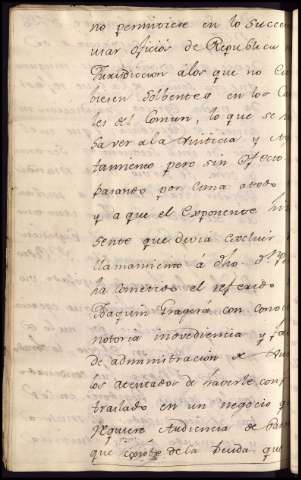 no permitiese en lo succe
usar oficios de Republica
Jurisdiccion á los que no es
biesen Solbentes en los Cau
les del Comun, lo que se h
sa ver a la Justicia y Ay
tamiento pero sin efecto
pasando por cima de todo
y a que el Exponente hi
sente que devia excluir
llamamiento á dho.
ha cometido el referido
Joaquin Fragera con cono
notoria inovediencia y fa
de administracion de Jus
los atentados de haverle conf
traslado en un negocio q
requiere Audiencia de
que conste de la deuda, que